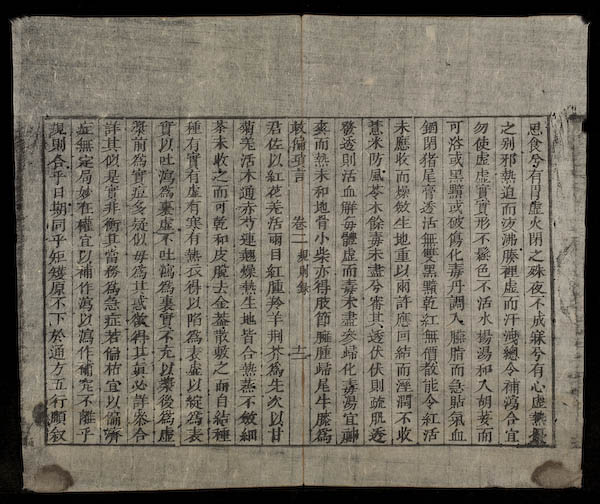 思食兮有胃虛火閉之殊夜不成寐兮有心虛熱
之別邪熱逼而汝沸騰裡虛而汗洩總令補瀉合宜
勿使虛虛實實形不鬆色不活水楊湯和入胡荽而
可浴或黑黯或破傷化毒丹調入臙脂而急貼氣血
錮閉猪尾膏透活無雙黑黯乾紅無價散能令紅活
未應收而燥斂生地重以兩許應回結而溼潤不收
薏米防風苓木餘毒未盡兮審其透伏伏則疏肌透
發透則活血解毒體虛而毒未盡參化毒湯宜
爽而熱未和地骨小柴亦得肢節臃腫尾牛膝為
救偏瑣言 卷二 規則錄 十二
君佐以紅花羌活兩目紅腫羚羊荆芥為生次以甘
菊羌活木通赤芍連翹燥熱生地皆合熱蒸不斂細
茶末收之而可乾和皮脫去金散敷之而自結種
種有實有虛有寒有熱衣得以陷為表虛以綻為表
實以吐瀉為裏虛不吐瀉為裏實不尤以藥後為虛
藥前為實痘多疑似毋為其惑欲得其真必詳參合
詳其似是實非衡其當務為急症若偏枯宜以偏濟
症無定局妙在權宜以補作瀉以瀉作補究不離乎
規則合乎日期同乎矩矱原不下於通方五行順敘